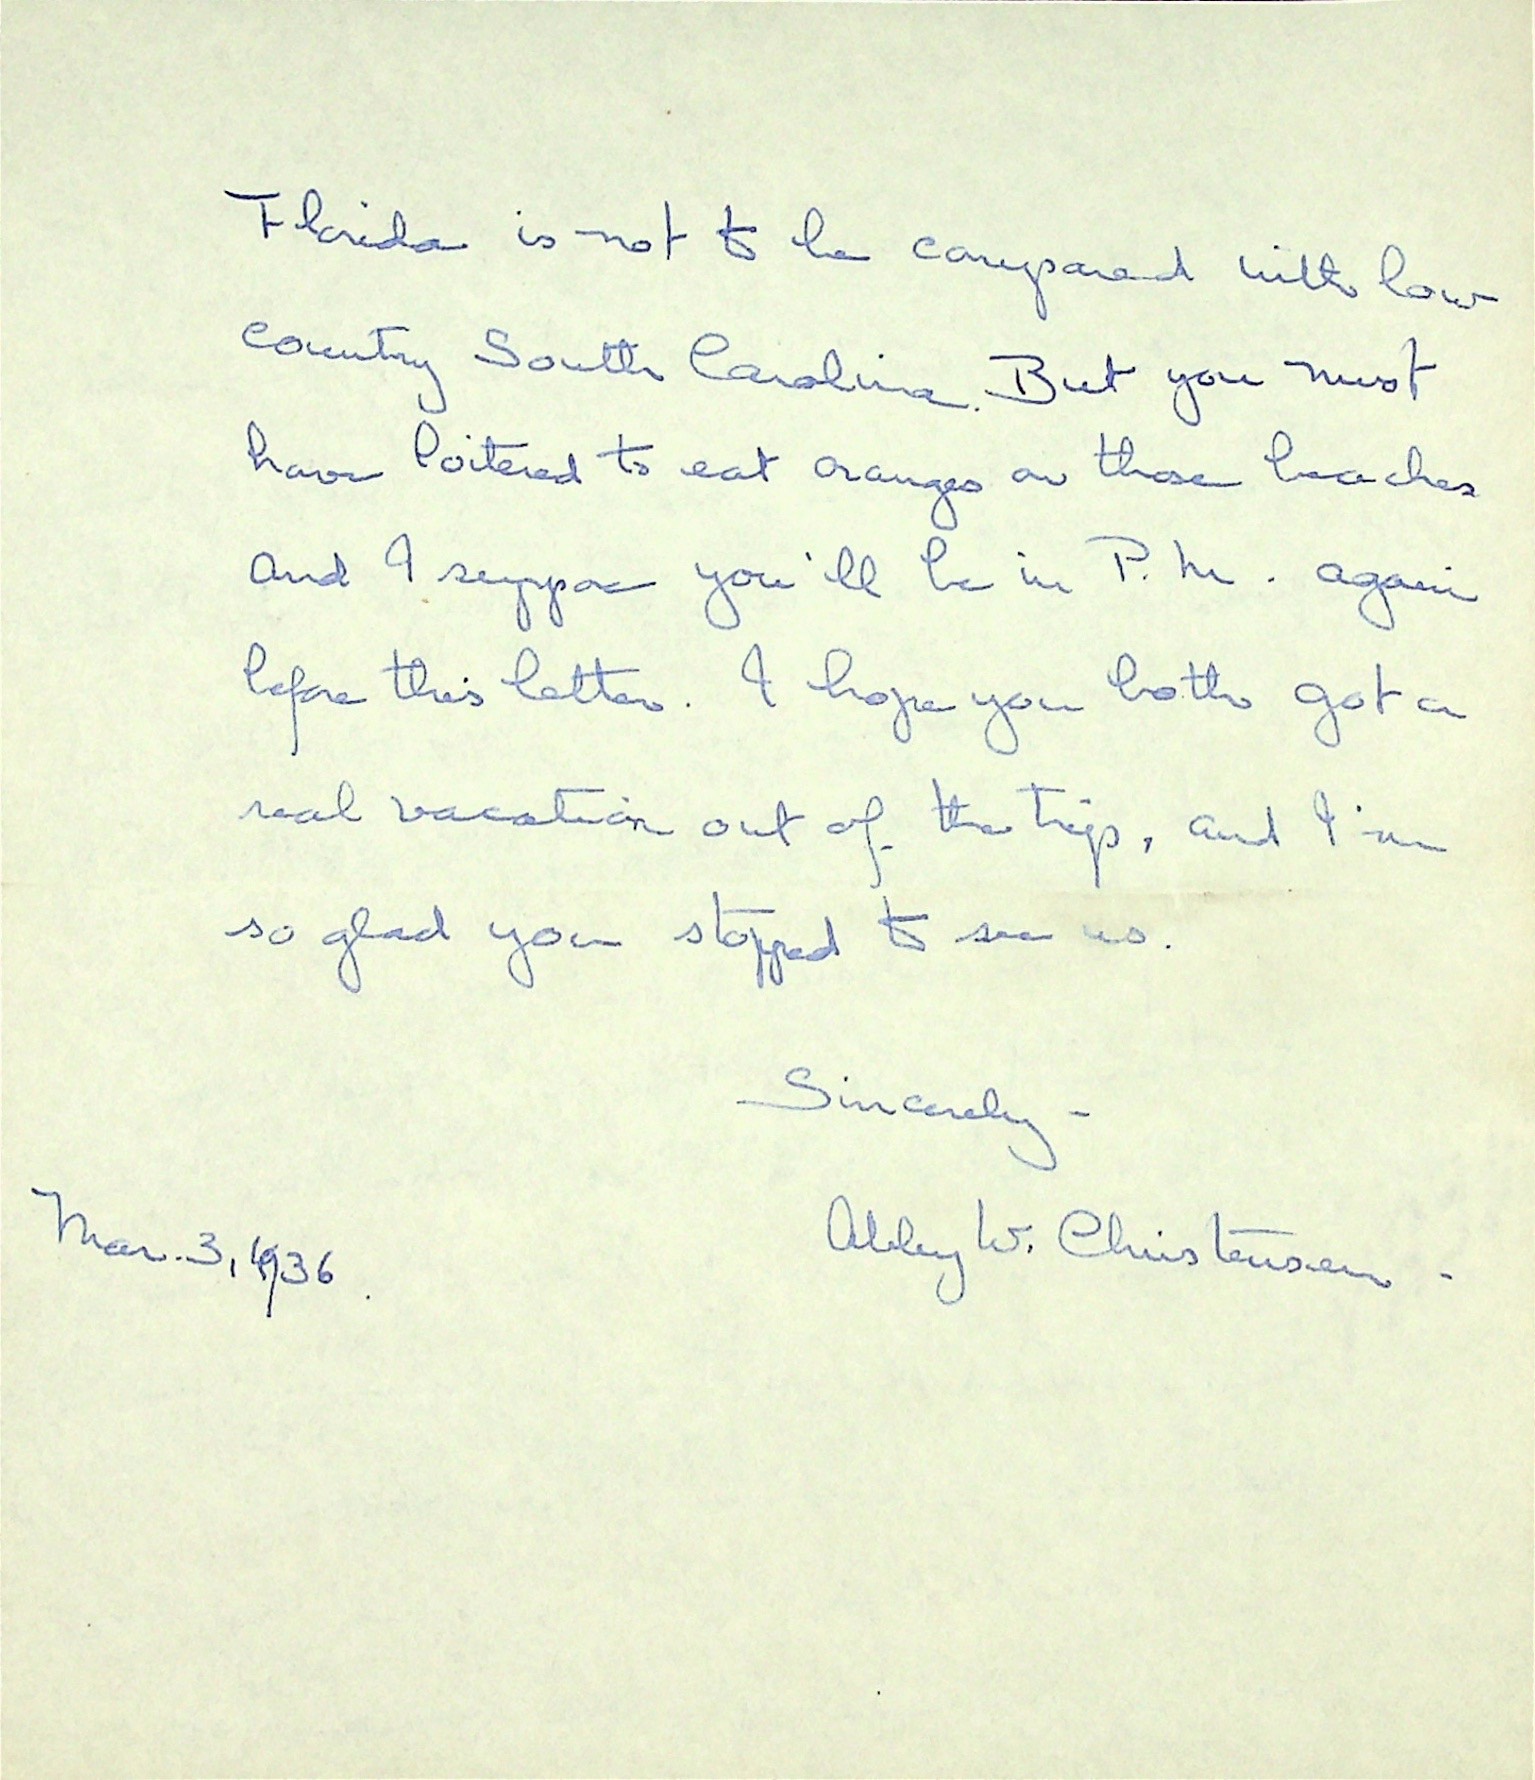 Florida is not to be compared with low
country South Carolina. But you must
have loitered to eat oranges on those beaches
and I suppose you'll be in P. M. again
before this letter. I hope you both got a
real vacation out of the trip, and I'm
so glad you stopped to see us.
Sincerely -
Abby W. Christensen -
Mar. 3, 1936.